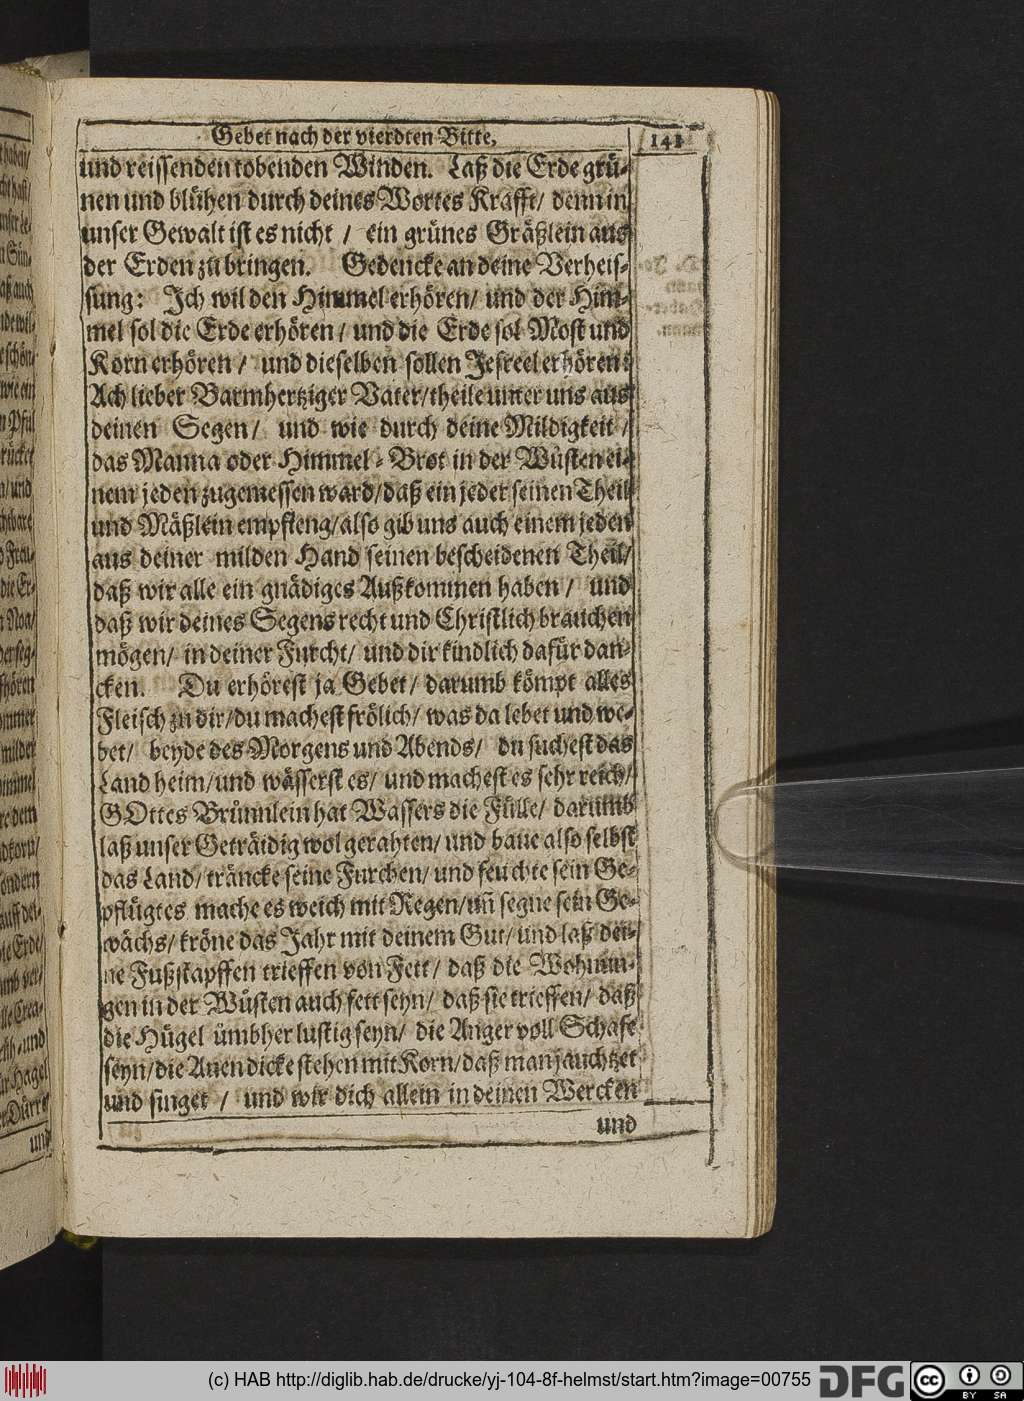 Gebet nach der vierdten Bitte. 141
und reissenden tobenden Winden. Laß die Erde grü-
nen und blühen durch deines Wortes Krafft/ denn in
unser Gewalt ist es nicht / ein grünes Gräßlein aus
der Erden zu bringen. Gedencke an deine Verheis-
sung: Ich wil den Himmel erhören/ und der Him-
mel sol die Erde erhören/ und die Erde sol Most und
Korn erhören / und dieselben sollen Jesreel erhören:
Ach lieber Barmhertziger Vater/ theile unter uns aus
deinen Segen/ und wie durch deine Mildigkeit /
das Manna oder Himmel-Brot in der Wüsten ei-
nem jeden zugemessen ward/ daß ein jeder seinen Theil
und Mäßlein empfieng/ also gib uns auch einem jeden
aus deiner milden Hand seinen bescheidenen Theil/
daß wir alle ein gnädiges Außkommen haben / und
daß wir deines Segens recht und Christlich brauchen
mögen/ in deiner Furcht/ und dir kindlich dafür dan-
cken. Du erhörest ja Gebet/ darumb kömpt alles
Fleisch zu dir/ du machest frölich/ was da lebet und we-
bet/ beyde des Morgens und Abends/ du suchest das
Land heim/ und wässerst es/ und machest es sehr reich/
GOttes Brünnlein hat Wassers die Fülle/ darumb
laß unser Geträidig wol gerahten/ und baue also selbst
das Land/ träncke seine Furchen/ und feuchte sein Ge-
pflügtes mache es weich mit Regen/ uñ segne sein Ge-
wächs/ kröne das Jahr mit deinem Gut/ und laß dei-
ne Fußstapffen trieffen von Fett/ daß die Wohnun-
gen in der Wüsten auch fett seyn/ daß sie trieffen/ daß
die Hügel ümbher lustig seyn/ die Anger voll Schafe
seyn/ die Auen dicke stehen mit Korn/ daß man jauchtzet
und singet / und wir dich allein in deinen Wercken
und
(c) HAB http://diglib.hab.de/drucke/yj-104-8f-helmst/start.htm?image=00755 DFG cc BY SA